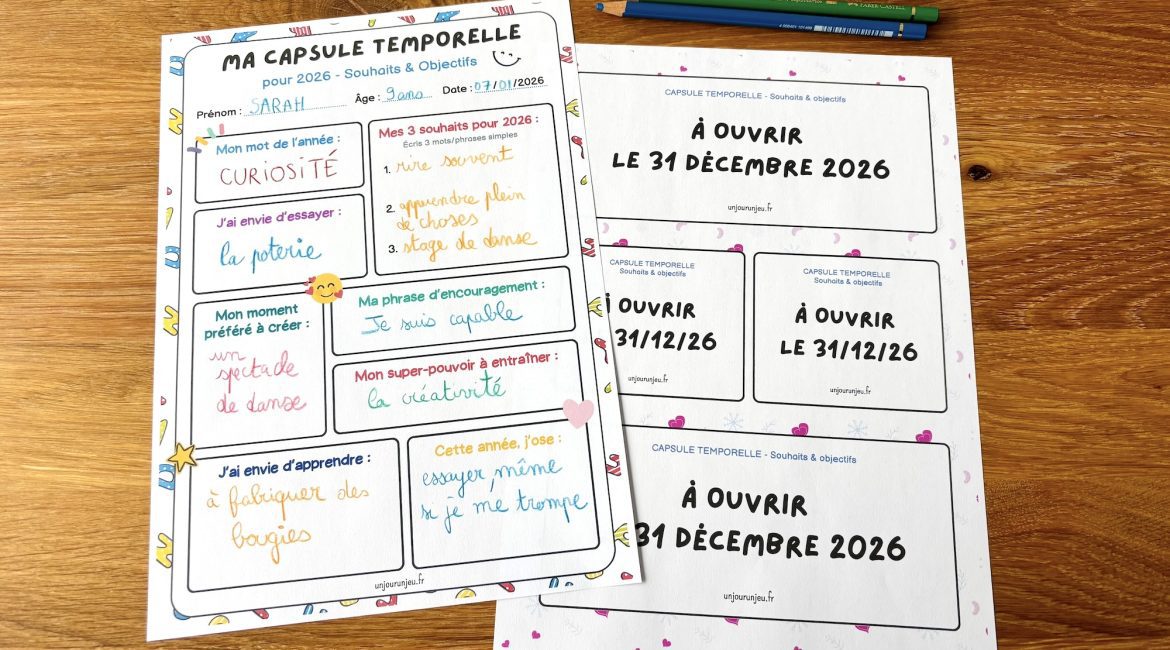 MA CAPSULE TEMPORELLE
pour 2026 - Souhaits & Objectifs
Prénom : SARAH Âge : 9 ans Date : 07/01/2026
Mon mot de l'année :
CURIOSITÉ
Mes 3 souhaits pour 2026 :
Écris 3 mots/phrases simples
1. rire souvent
2. apprendre plein
de choses
3. stage de danse
J'ai envie d'essayer :
la poterie
Mon moment
préféré à créer :
un
spectacle
de danse
Ma phrase d'encouragement :
Je suis capable
Mon super-pouvoir à entraîner :
la créativité
J'ai envie d'apprendre :
à fabriquer des
bougies
Cette année, j'ose :
essayer, même
si je me trompe
unjourunjeu.fr
FABER CASTELL
CAPSULE TEMPORELLE - Souhaits & objectifs
À OUVRIR
LE 31 DÉCEMBRE 2026
unjourunjeu.fr
CAPSULE TEMPORELLE
Souhaits & objectifs
À OUVRIR
31/12/26
unjourunjeu.fr
CAPSULE TEMPORELLE
Souhaits & objectifs
À OUVRIR
LE 31/12/26
unjourunjeu.fr
CAPSULE TEMPORELLE - Souhaits & objectifs
À OUVRIR
31 DÉCEMBRE 2026
unjourunjeu.fr